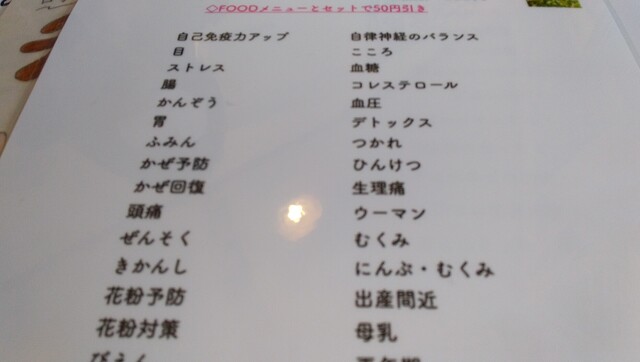 ◇FOODメニューとセットで50円引き
自己免疫力アップ 自律神経のバランス
目 こころ
ストレス 血糖
腸 コレステロール
かんぞう 血圧
胃 デトックス
ふみん つかれ
かぜ予防 ひんけつ
かぜ回復 生理痛
頭痛 ウーマン
ぜんそく むくみ
きかんし にんぷ・むくみ
花粉予防 出産間近
花粉対策 母乳
びえん 更年期